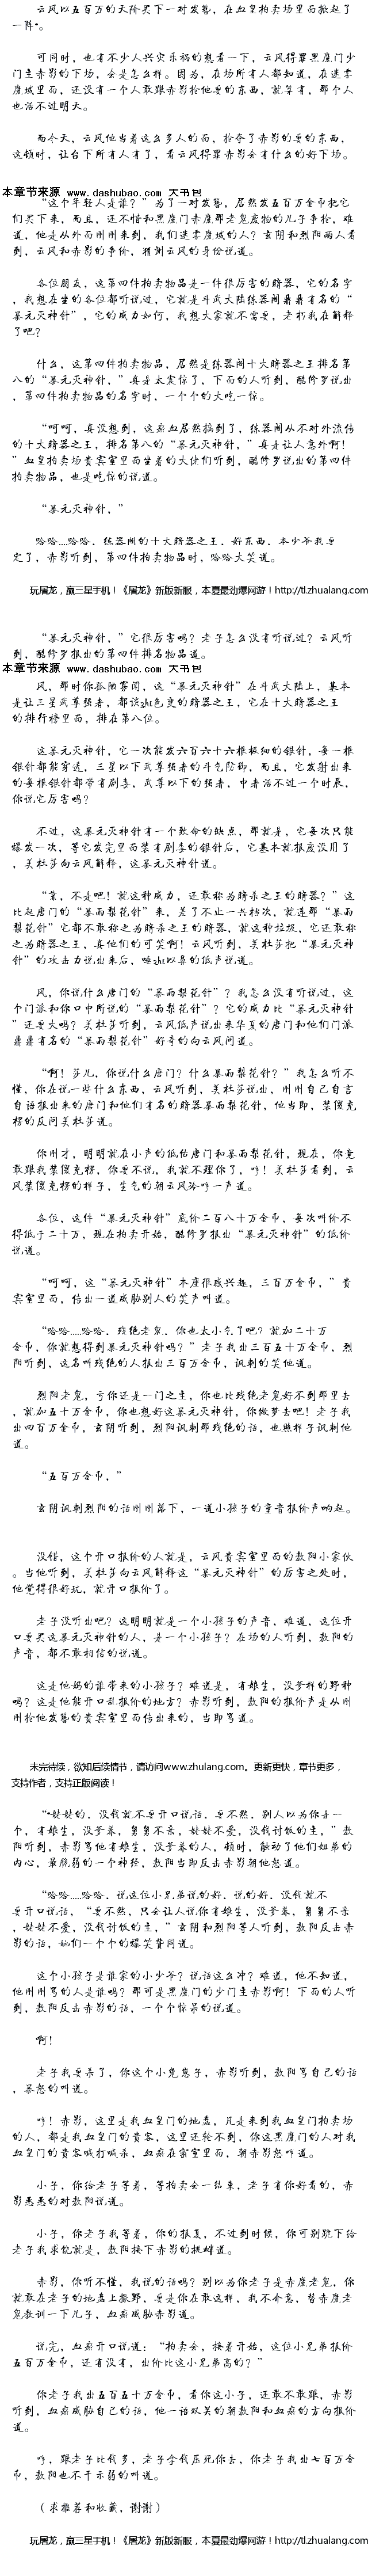 云风以五百万的天阶买下一对发簪，在血皇拍卖场里面掀起了
一阵*。
可同时，也有不少人兴灾乐祸的想看一下，云风得罪黑魔门少
门主赤影的下场，会是怎么样。因为，在场所有人都知道，在迷雾
魔域里面，还没有一个人敢跟赤影抢他要的东西，就算有，那个人
也活不过明天。
而今天，云风他当着这么多人的面，抢夺了赤影的要的东西，
这顿时，让台下所有人有了，看云风得罪赤影会有什么的好下场。
本章节来源 www.dashubao.com 大书包
“这个年轻人是谁？”为了一对发簪，居然发五百万金币把它
们买下来，而且，还不惜和黑魔门赤魔那老鬼废物的儿子争抢，难
道，他是从外面刚刚来到，我们迷雾魔域的人？玄阴和烈阳两人看
到，云风和赤影的争价，猜测云风的身份说道。
各位朋友，这第四件拍卖物品是一件很厉害的暗器，它的名字
，我想在坐的各位都听说过，它就是斗武大陆练器阁鼎鼎有名的“
暴元灭神针”，它的威力如何，我想大家就不需要，老朽我在解释
了吧？
什么，这第四件拍卖物品，居然是练器阁十大暗器之王排名第
八的“暴元灭神针，”真是太震惊了，下面的人听到，酷修罗说出
，第四件拍卖物品的名字时，一个个的大吃一惊。
“呵呵，真没想到，这血皿居然搞到了，练器阁从不对外流传
的十大暗器之王，排名第八的“暴元灭神针，”真是让人意外啊！
”血皇拍卖场贵宾室里面坐着的大佬们听到，酷修罗说出的第四件
拍卖物品，也是吃惊的说道。
“暴元灭神针，”
哈哈....哈哈．练器阁的十大暗器之王．好东西．本少爷我要
定了，赤影听到，第四件拍卖物品时，哈哈大笑道。
玩屠龙，赢三星手机！《屠龙》新版新服，本夏最劲爆网游！http://tl.zhualang.com
“暴元灭神针，”它很厉害吗？老子怎么没有听说过？云风听
到，酷修罗报出的第四件排名物品道。
本章节来源 www.dashubao.com 大书包
风，那时你孤陋寡闻，这“暴元灭神针”在斗武大陆上，基本
是让三星武尊强者，都谈zhi色变的暗器之王，它在十大暗器之王
的排行榜里面，排在第八位。
这暴元灭神针，它一次能发六百六十六根极细的银针，每一根
银针都能穿透，三星以下武尊强者的斗气防御，而且，它发射出来
的每根银针都带有剧毒，武尊以下的强者，中者活不过一个时辰，
你说它厉害吗？
不过，这暴元灭神针有一个致命的缺点，那就是，它每次只能
爆发一次，等它发完里面装有剧毒的银针后，它基本就报废没用了
，美杜莎向云风解释，这暴元灭神针道。
“靠，不是吧！就这种威力，还敢称为暗杀之王的暗器？”这
比起唐门的“暴雨梨花针”来，差了不止一共档次，就连那“暴雨
梨花针”它都不敢称之为暗器之王的暗器，就这种垃圾，它还敢称
之为暗器之王，真他们的可笑啊！云风听到，美杜莎把“暴元灭神
针”的攻击力说出来后，嗤zhi以鼻的低声说道。
风，你说什么唐门的“暴雨梨花针”？我怎么没有听说过，这
个门派和你口中所说的“暴雨梨花针”？它的威力比“暴元灭神
针”还要大吗？美杜莎听到，云风低声说出来华夏的唐门和他们门派
鼎鼎有名的“暴雨梨花针”好奇的向云风问道。
“啊！莎儿，你说什么唐门？什么暴雨梨花针？”我怎么听不
懂，你在说一些什么东西，云风听到，美杜莎说出，刚刚自己自言
自语报出来的唐门和他们有名的暗器暴雨梨花针，他当即，装傻充
楞的反问美杜莎道。
你刚才，明明就在小声的低估唐门和暴雨梨花针，现在，你竟
敢跟我装傻充楞，你要不说，我就不理你了，哼！美杜莎看到，云
风装傻充楞的样子，生气的朝云风冷哼一声道。
各位，这件“暴元灭神针”底价二百八十万金币，每次叫价不
得低于二十万，现在拍卖开始，酷修罗报出“暴元灭神针”的低价
说道。
“呵呵，这“暴元灭神针”本座很感兴趣，三百万金币，”贵
宾室里面，传出一道威胁别人的笑声叫道。
“哈哈.....哈哈．残绝老鬼．你也太小气了吧？就加二十万
金币，你就想得到暴元灭神针吗？”老子我出三百五十万金币，烈
阳听到，这名叫残绝的人报出三百万金币，讽刺的笑他道。
烈阳老鬼，亏你还是一门之主，你也比残绝老鬼好不到那里去
，就加五十万金币，你也想好这暴元灭神针，你做梦去吧！老子我
出四百万金币，玄阴听到，烈阳讽刺那残绝的话，也照样子讽刺他
道。
“五百万金币，”
玄阴讽刺烈阳的话刚刚落下，一道小孩子的童音报价声响起。
没错，这个开口报价的人就是，云风贵宾室里面的敖阳小家伙
。当他听到，美杜莎向云风解释这“暴元灭神针”的厉害之处时，
他觉得很好玩，就开口报价了。
老子没听出吧？这明明就是一个小孩子的声音，难道，这位开
口要买这暴元灭神针的人，是一个小孩子？在场的人听到，敖阳的
声音，都不敢相信的说道。
这是他妈的谁带来的小孩子？难道是，有娘生，没爹样的野种
吗？这是他能开口乱报价的地方？赤影听到，敖阳的报价声是从刚
刚抢他发簪的贵宾室里面传出来的，当即骂道。
未完待续，欲知后续情节，请访问www.zhulang.com。更新更快，章节更多，
支持作者，支持正版阅读！
“*姥姥的．没钱就不要开口说话．要不然．别人以为你是一
个，有娘生，没爹养，舅舅不亲，姥姥不爱，没钱讨饭的主，”敖
阳听到，赤影骂他有娘生，没爹养的人，顿时，触动了他们姐弟的
内心，最脆弱的一个神经，敖阳当即反击赤影朝他怒道。
“哈哈.....哈哈．说这位小兄弟说的好．说的好．没钱就不
要开口说话，“要不然，只会让人说你有娘生，没爹养，舅舅不亲
，姥姥不爱，没钱讨饭的主，”玄阴和烈阳等人听到，敖阳反击赤
影的话，她们一个个的爆笑赞同道。
这个小孩子是谁家的小少爷？说话这么冲？难道，他不知道，
他刚刚骂的人是谁吗？那可是黑魔门的少门主赤影啊！下面的人听
到，敖阳反击赤影的话，一个个惊呆的说道。
啊！
老子我要杀了，你这个小兔崽子，赤影听到，敖阳骂自己的话
，暴怒的叫道。
哼！赤影，这里是我血皇门的地盘，凡是来到我血皇门拍卖场
的人，都是我血皇门的贵客，这里还轮不到，你这黑魔门的人对我
血皇门的贵客喊打喊杀，血皿在密室里面，朝赤影怒哼道。
小子，你给老子等着，等拍卖会一结束，老子有你好看的，赤
影恶恶的对敖阳说道。
小子，你老子我等着，你的报复，不过到时候，你可别跪下给
老子我求饶就是，敖阳接下赤影的挑衅道。
赤影，你听不懂，我说的话吗？别以为你老子是赤魔老鬼，你
就敢在老子的地盘上撒野，要是你在敢这样，我不介意，替赤魔老
鬼教训一下儿子，血皿威胁赤影道。
说完，血皿开口说道：“拍卖会，接着开始，这位小兄弟报价
五百万金币，还有没有，出价比这小兄弟高的？”
你老子我出五百五十万金币，看你这小子，还敢不敢跟，赤影
听到，血皿威胁自己的话，他一语双关的朝敖阳和血皿的方向报价
道。
哼，跟老子比钱多，老子拿钱压死你去，你老子我出七百万金
币，敖阳也不干示弱的叫道。
（求推荐和收藏，谢谢）
玩屠龙，赢三星手机！《屠龙》新版新服，本夏最劲爆网游！http://tl.zhualang.com